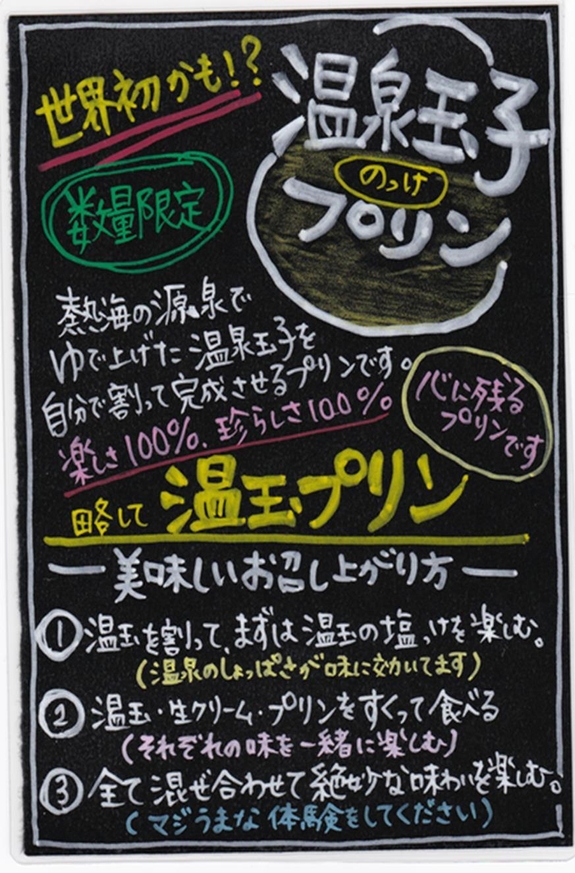 世界初かも!?
温泉玉子
のっけ
プリン
数量限定
熱海の源泉で
ゆで上げた温泉玉子を
自分で割って完成させるプリンです。
楽しさ100%、珍らしさ100%
心に残る
プリンです
略して 温玉プリン
ー美味しいお召し上がり方ー
① 温玉を割って、まずは温玉の塩っけを楽しむ。
(温泉のしょっぱさが味に効いてます)
② 温玉・生クリーム・プリンをすくって食べる
(それぞれの味を一緒に楽しむ)
③ 全て混ぜ合わせて絶妙な味わいを楽しむ。
(マジうまな体験をしてください)